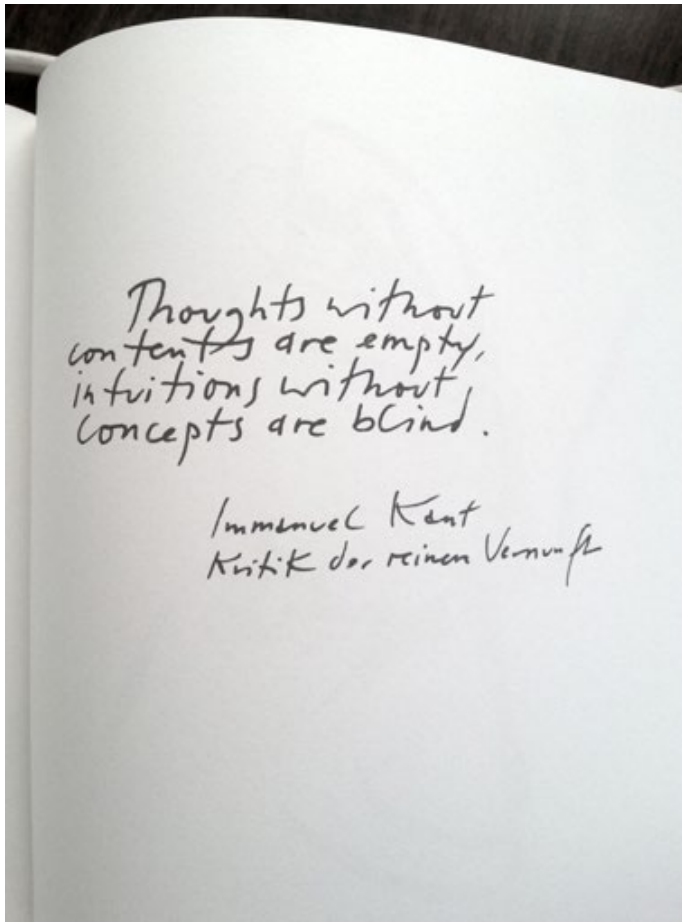 Thoughts without
contents are empty,
intuitions without
concepts are blind.
Immanuel Kant
Kritik der reinen Vernunft